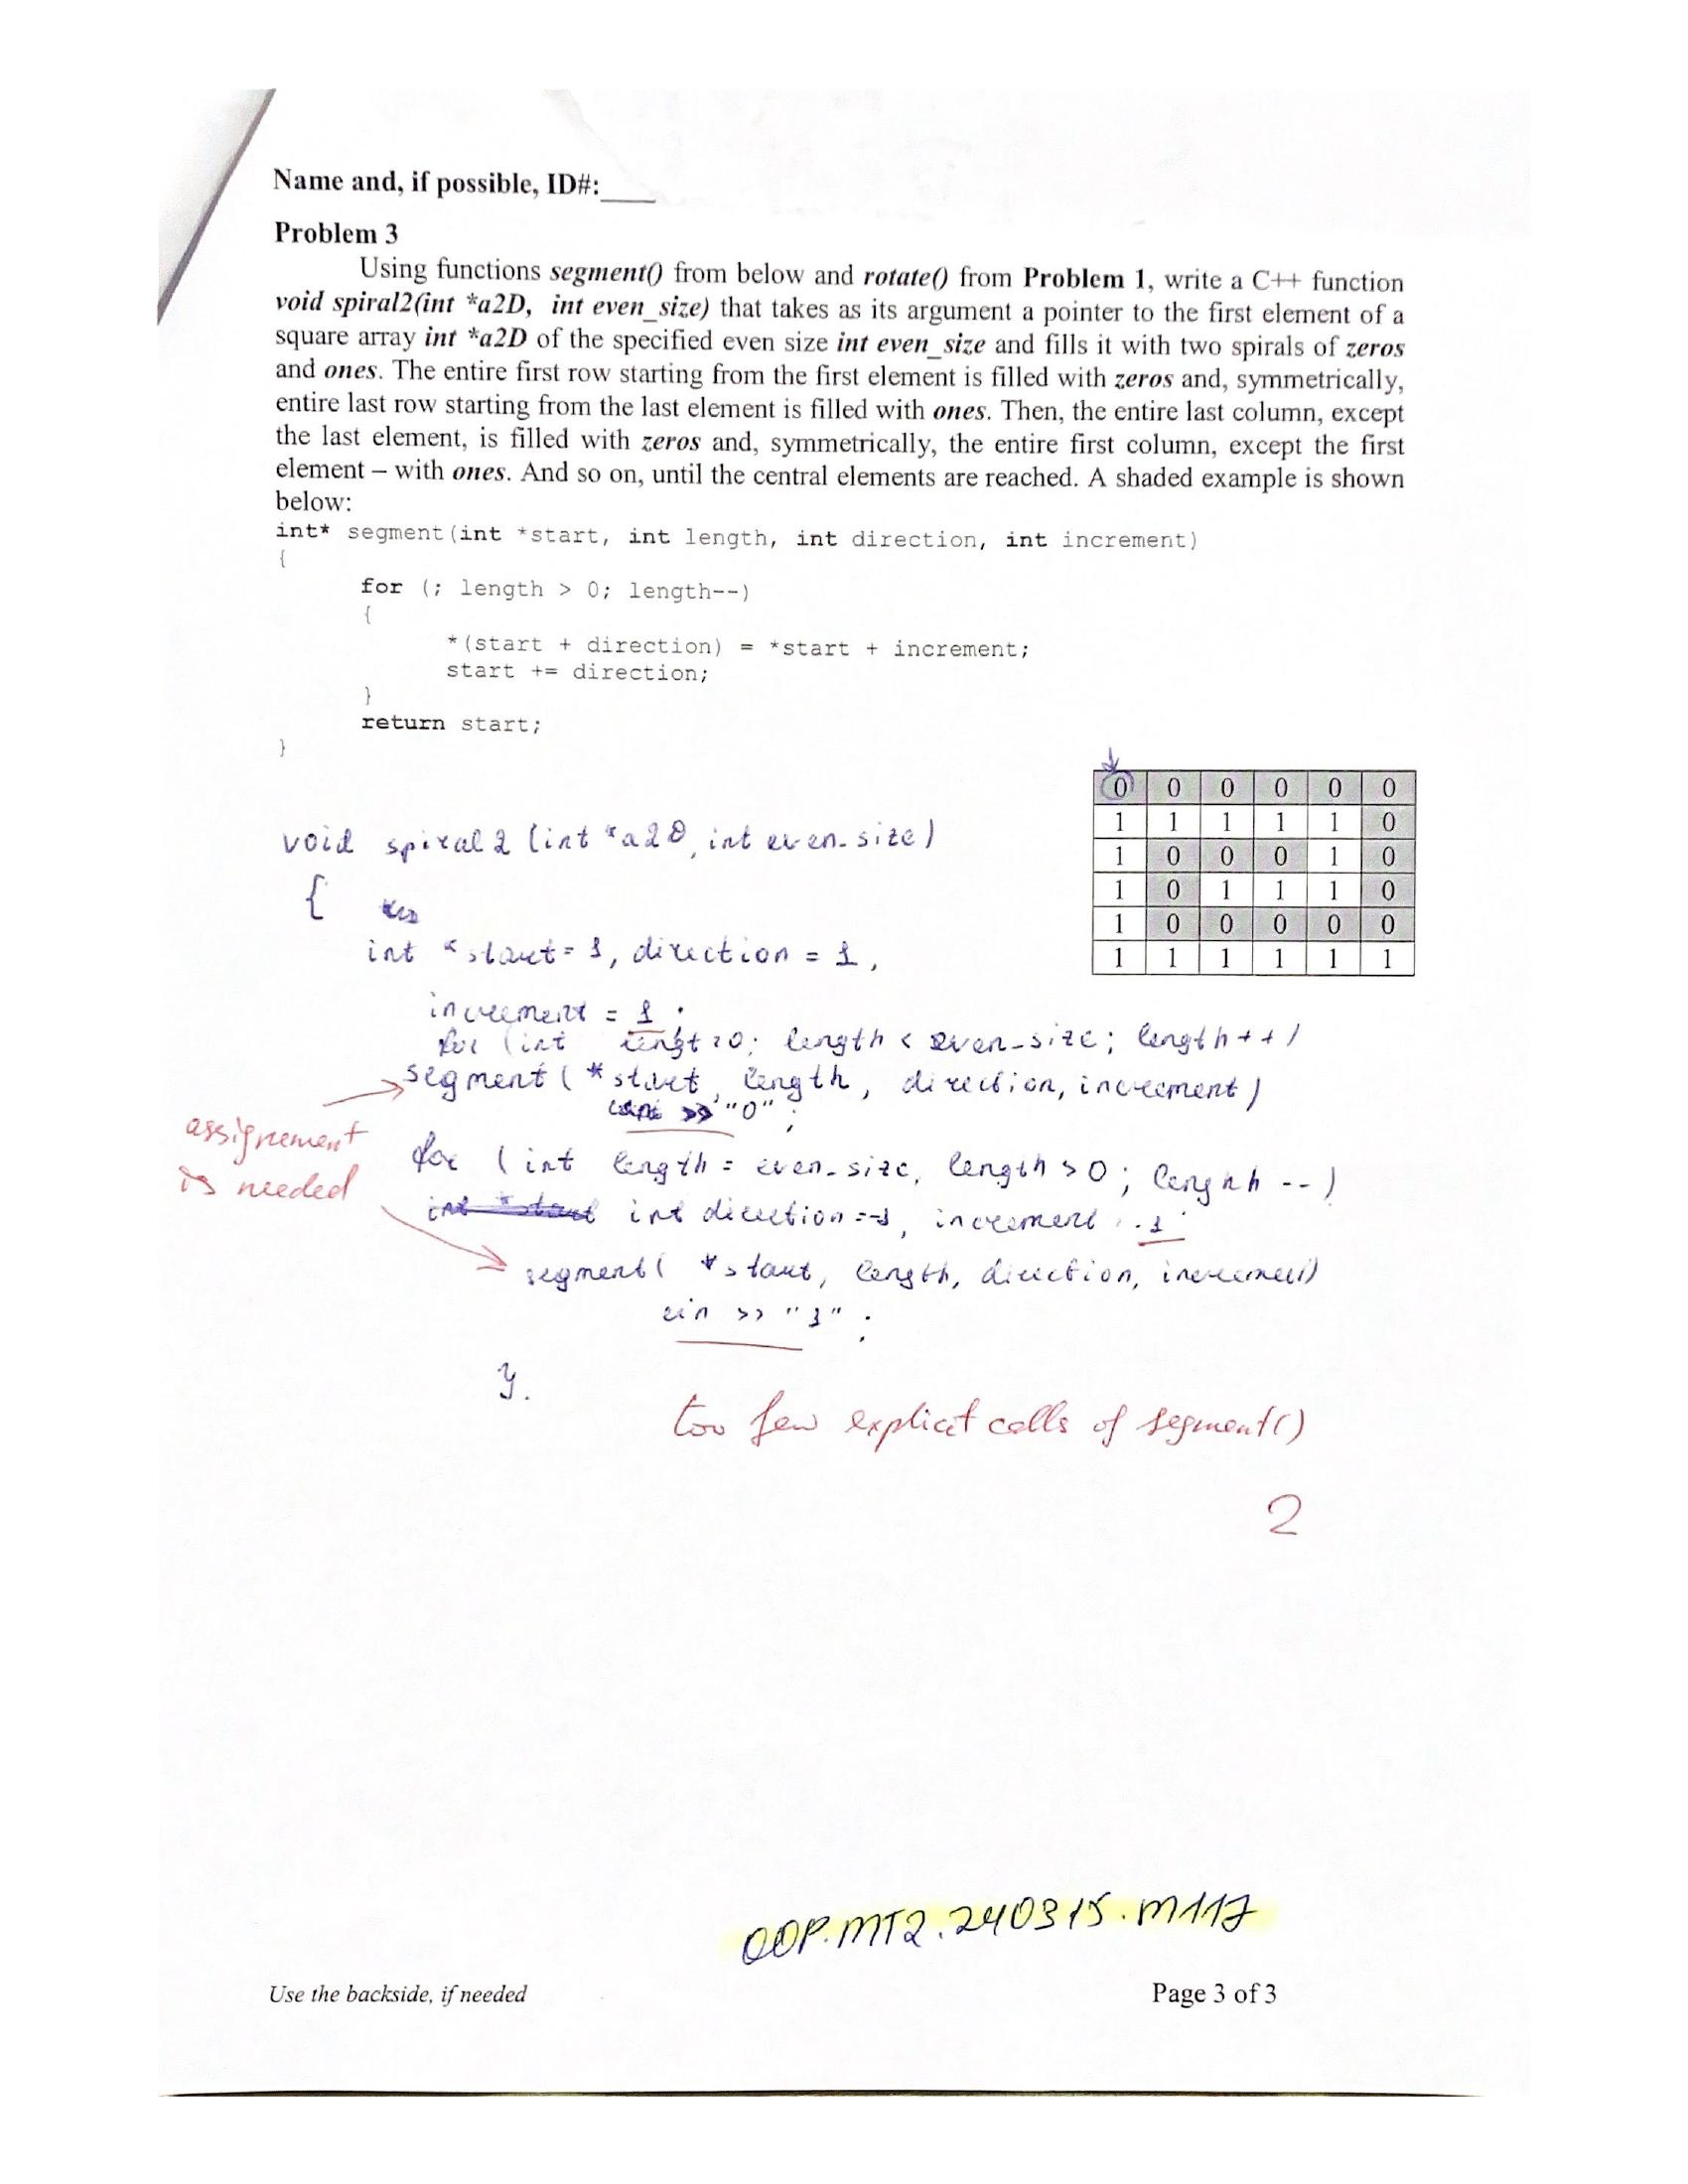 Name and, if possible, ID#:____
Problem 3
Using functions segment() from below and rotate() from Problem 1, write a C++ function
void spiral2(int *a2D, int even_size) that takes as its argument a pointer to the first element of a
square array int *a2D of the specified even size int even_size and fills it with two spirals of zeros
and ones. The entire first row starting from the first element is filled with zeros and, symmetrically,
entire last row starting from the last element is filled with ones. Then, the entire last column, except
the last element, is filled with zeros and, symmetrically, the entire first column, except the first
element – with ones. And so on, until the central elements are reached. A shaded example is shown
below:
int* segment(int *start, int length, int direction, int increment)
{
for (; length > 0; length--)
{
*(start + direction) = *start + increment;
start += direction;
}
return start;
}
0 0 0 0 0 0
1 1 1 1 1 0
1 0 0 0 1 0
1 0 1 1 1 0
1 0 0 0 0 0
1 1 1 1 1 1
void spiral2 (int *a2D, int even_size)
{
int *start = 1, direction = 1,
increment = 1;
for (int lengt = 0; length < even_size; length++)
segment(*start, length, direction, increment)
>> "0";
assignement
is needed
for (int length = even_size, length > 0; lengnh --)
int direction = -1, increment 1
segment( *start, length, direction, increment)
cin >> "1";
}.
too few explicit calls of segment()
2
OOP.MT2.240315.M117
Use the backside, if needed
Page 3 of 3